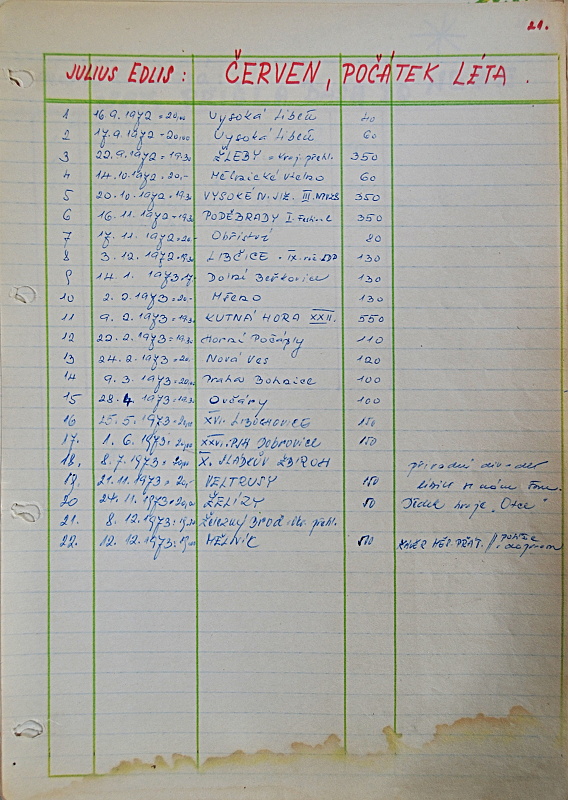 21.
JULIUS EDLIS: ČERVEN, POČÁTEK LÉTA.
1 16.9.1972 = 20,00 Vysoká Libeň 40
2 17.9.1972 - 20,00 Vysoká Libeň 60
3 22.9.1972 = 19.30 ŽLEBY = kraj. přehl. 350
4 14.10.1972 = 20,- Mělnické Vtelno 60
5 20.10.1972 = 19.30 VYSOKÉ N. JIZ. III. 350
6 16.11.1972 = 19.30 PODĚBRADY I. 350
7 17.11.1972 = 20,- Obříství 80
8 3.12.1972 = 19.30 LIBČICE - IX. 130
9 14.1.1973 = 17,- Dolní Beřkovice 130
10 2.2.1973 = 20,- Mšeno 130
11 9.2.1973 = 19.30 KUTNÁ HORA XXII. 550
12 22.2.1973 = 19.30 Horní Počáply 110
13 24.2.1973 = 20,- Nová Ves 120
14 9.3.1973 = 20,00 Praha Bohnice 100
15 28.4.1973 = 20,00 Ovčáry 100
16 25.5.1973 = 20,00 XVI. LIBOCHOVICE 150
17. 1.6.1973 = 20,00 XXVI. Dobrovice 150
18. 8.7.1973 = 20,00 X. SLÁDKŮV ZBIROH přírodní div-del
19. 21.11.1973 = 20,- VELTRUSY 150
20 24.11.1973 = 20,00 ŽELÍZY 50 Dědek hraje "Otce"
21. 8.12.1973 = 19.30 Železný Brod přehl.
22. 12.12.1973 = MĚLNÍK 50 ZÁVĚR MĚS. PŘÁT. //